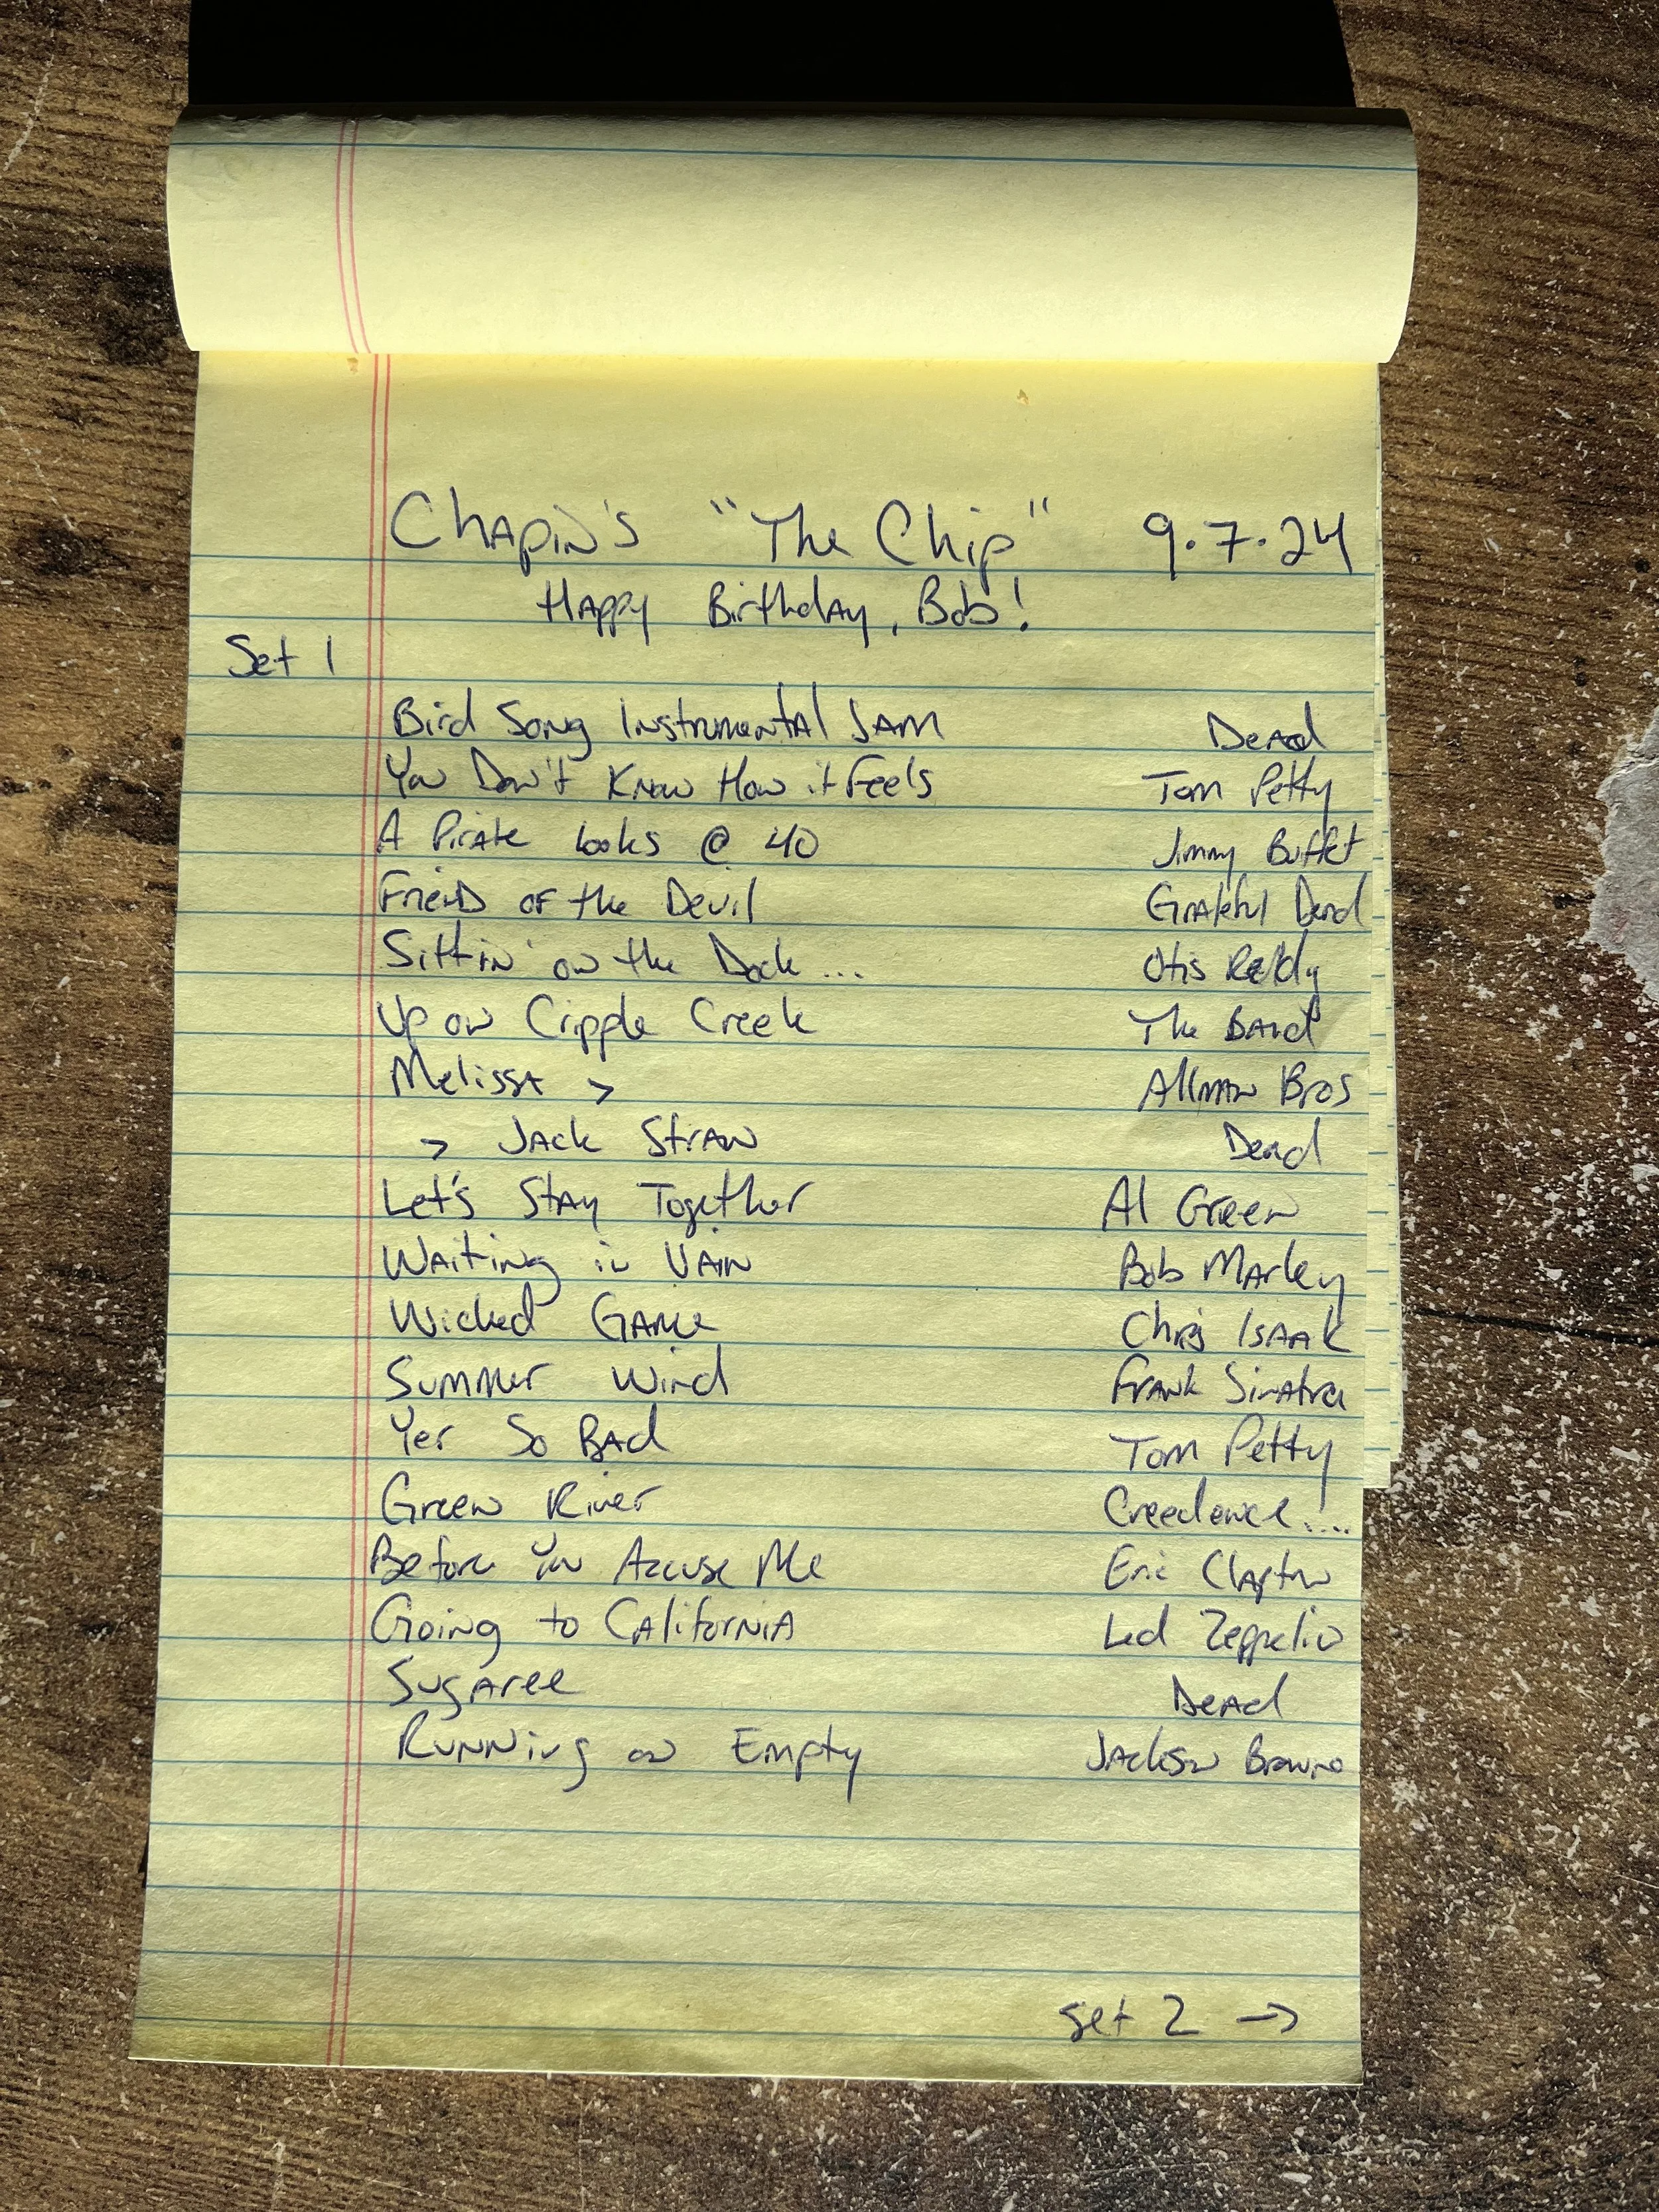 Chapin's "The Chip" 9.7.24
Happy Birthday, Bob!
Set 1
Bird Song Instrumental Jam Dead
You Don't Know How it Feels Tom Petty
A Pirate Looks @ 40 Jimmy Buffet
Friend of the Devil Grateful Dead
Sittin' on the Dock ... Otis Redding
Up on Cripple Creek The Band
Melissa > Allman Bros
> Jack Straw Dead
Let's Stay Together Al Green
Waiting in Vain Bob Marley
Wicked Game Chris Isaak
Summer Wind Frank Sinatra
Yer So Bad Tom Petty
Green River Creedence....
Before You Accuse Me Eric Clapton
Going to California Led Zeppelin
Sugaree Dead
Running on Empty Jackson Browne
set 2 →